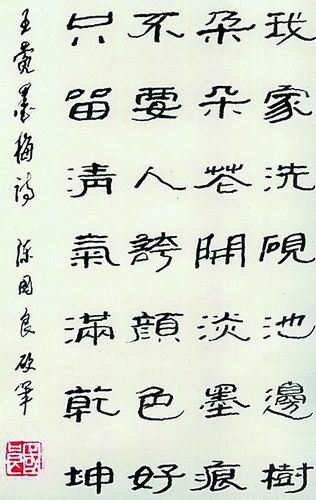 我家洗硯池邊樹
朵朵花開淡墨痕
不要人誇顏色好
只留清氣滿乾坤
王冕墨梅詩 陳國良硬筆
國良